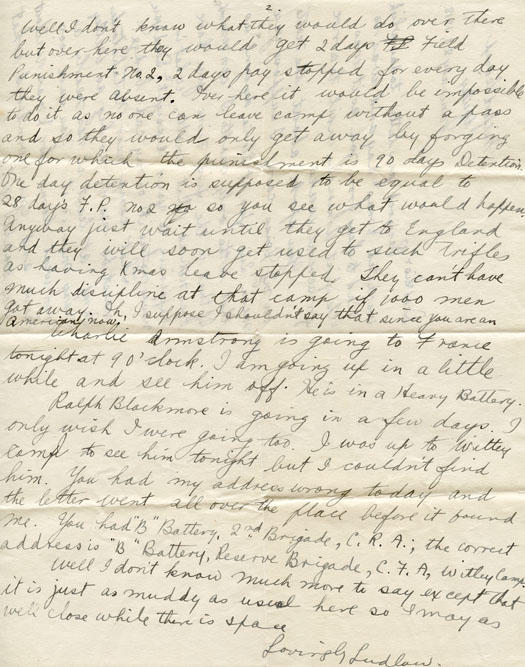 2.
Well I don't know what they would do over there
but over here they would get 2 days Field
Punishment No. 2, 2 days pay stopped for every day
they were absent. Over here it would be impossible
to do it as no one can leave camp without a pass
and so they would only get away by forging
one for which the punishment is 90 days Detention.
One day detention is supposed to be equal to
28 days F.P. no 2 so you see what would happen.
Anyway just wait until they get to England
and they will soon get used to such trifles
as having Xmas leave stopped. They can't have
much discipline at that camp if 1000 men
got away. I suppose I shouldn't say that since you are an
American now.
Charlie Armstrong is going to France
tonight at 9 o'clock. I am going up in a little
while and see him off. He is in a Heavy Battery.
Ralph Blackmore is going in a few days. I
only wish I were going too. I was up to Witley
Camp to see him tonight but I couldn't find
him. You had my address wrong today and
the letter went all over the place before it found
me. You had "B" Battery, 2nd Brigade, C.R.A., the correct
address is "B" Battery, Reserve Brigade, C.F.A, Witley Camp.
Well I don't know much more to say except that
it is just as muddy as usual here so I may as
well close while there is space
Lovingly Ludlow.